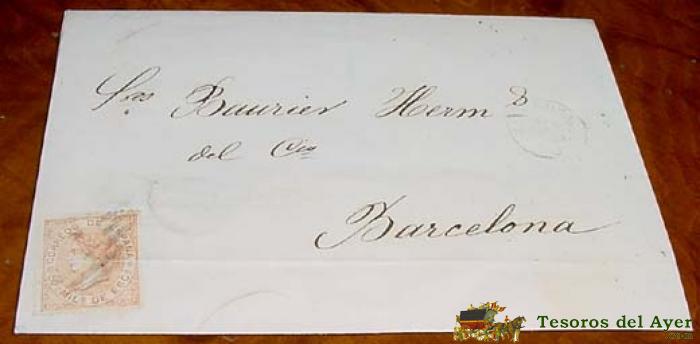 Sres Baurier Herm s
del Co
Barcelona
CORREOS DE ESPAÑA
50 MILS DE ESCO
Tesoros del Ayer
.com